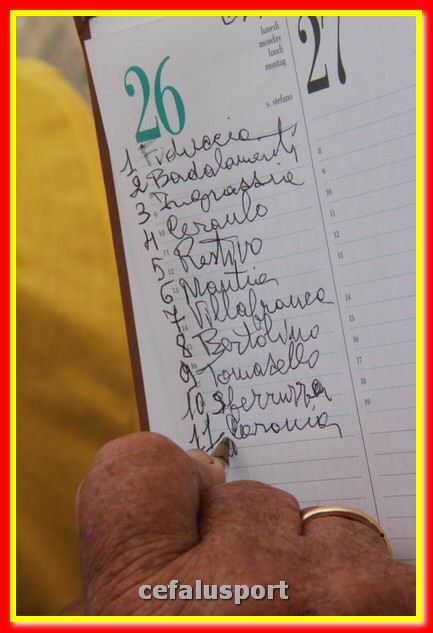 lunedì
monday
lundi
montag
s. stefano
26
27
1 Fiduccia
2 Badalamenti
3 Ingrassia
4 Ceraulo
5 Restivo
6 Mantia
7 Villafranca
8 Bartolino
9 Tomasello
10 Sferruzza
11 Caronia
cefalusport